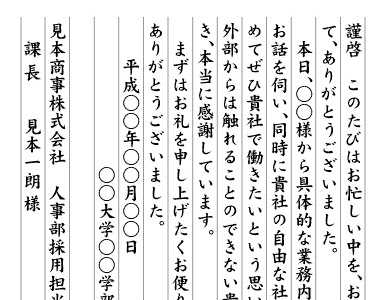 謹啓　このたびはお忙しい中を、お
て、ありがとうございました。
　本日、〇〇様から具体的な業務内
お話を伺い、同時に貴社の自由な社
めてぜひ貴社で働きたいという思い
外部からは触れることのできない貴
き、本当に感謝しています。
　まずはお礼を申し上げたくお便り
ありがとうございました。
　平成〇〇年〇〇月〇〇日
〇〇大学〇〇学部
見本商事株式会社　人事部採用担当
課長　見本一朗様